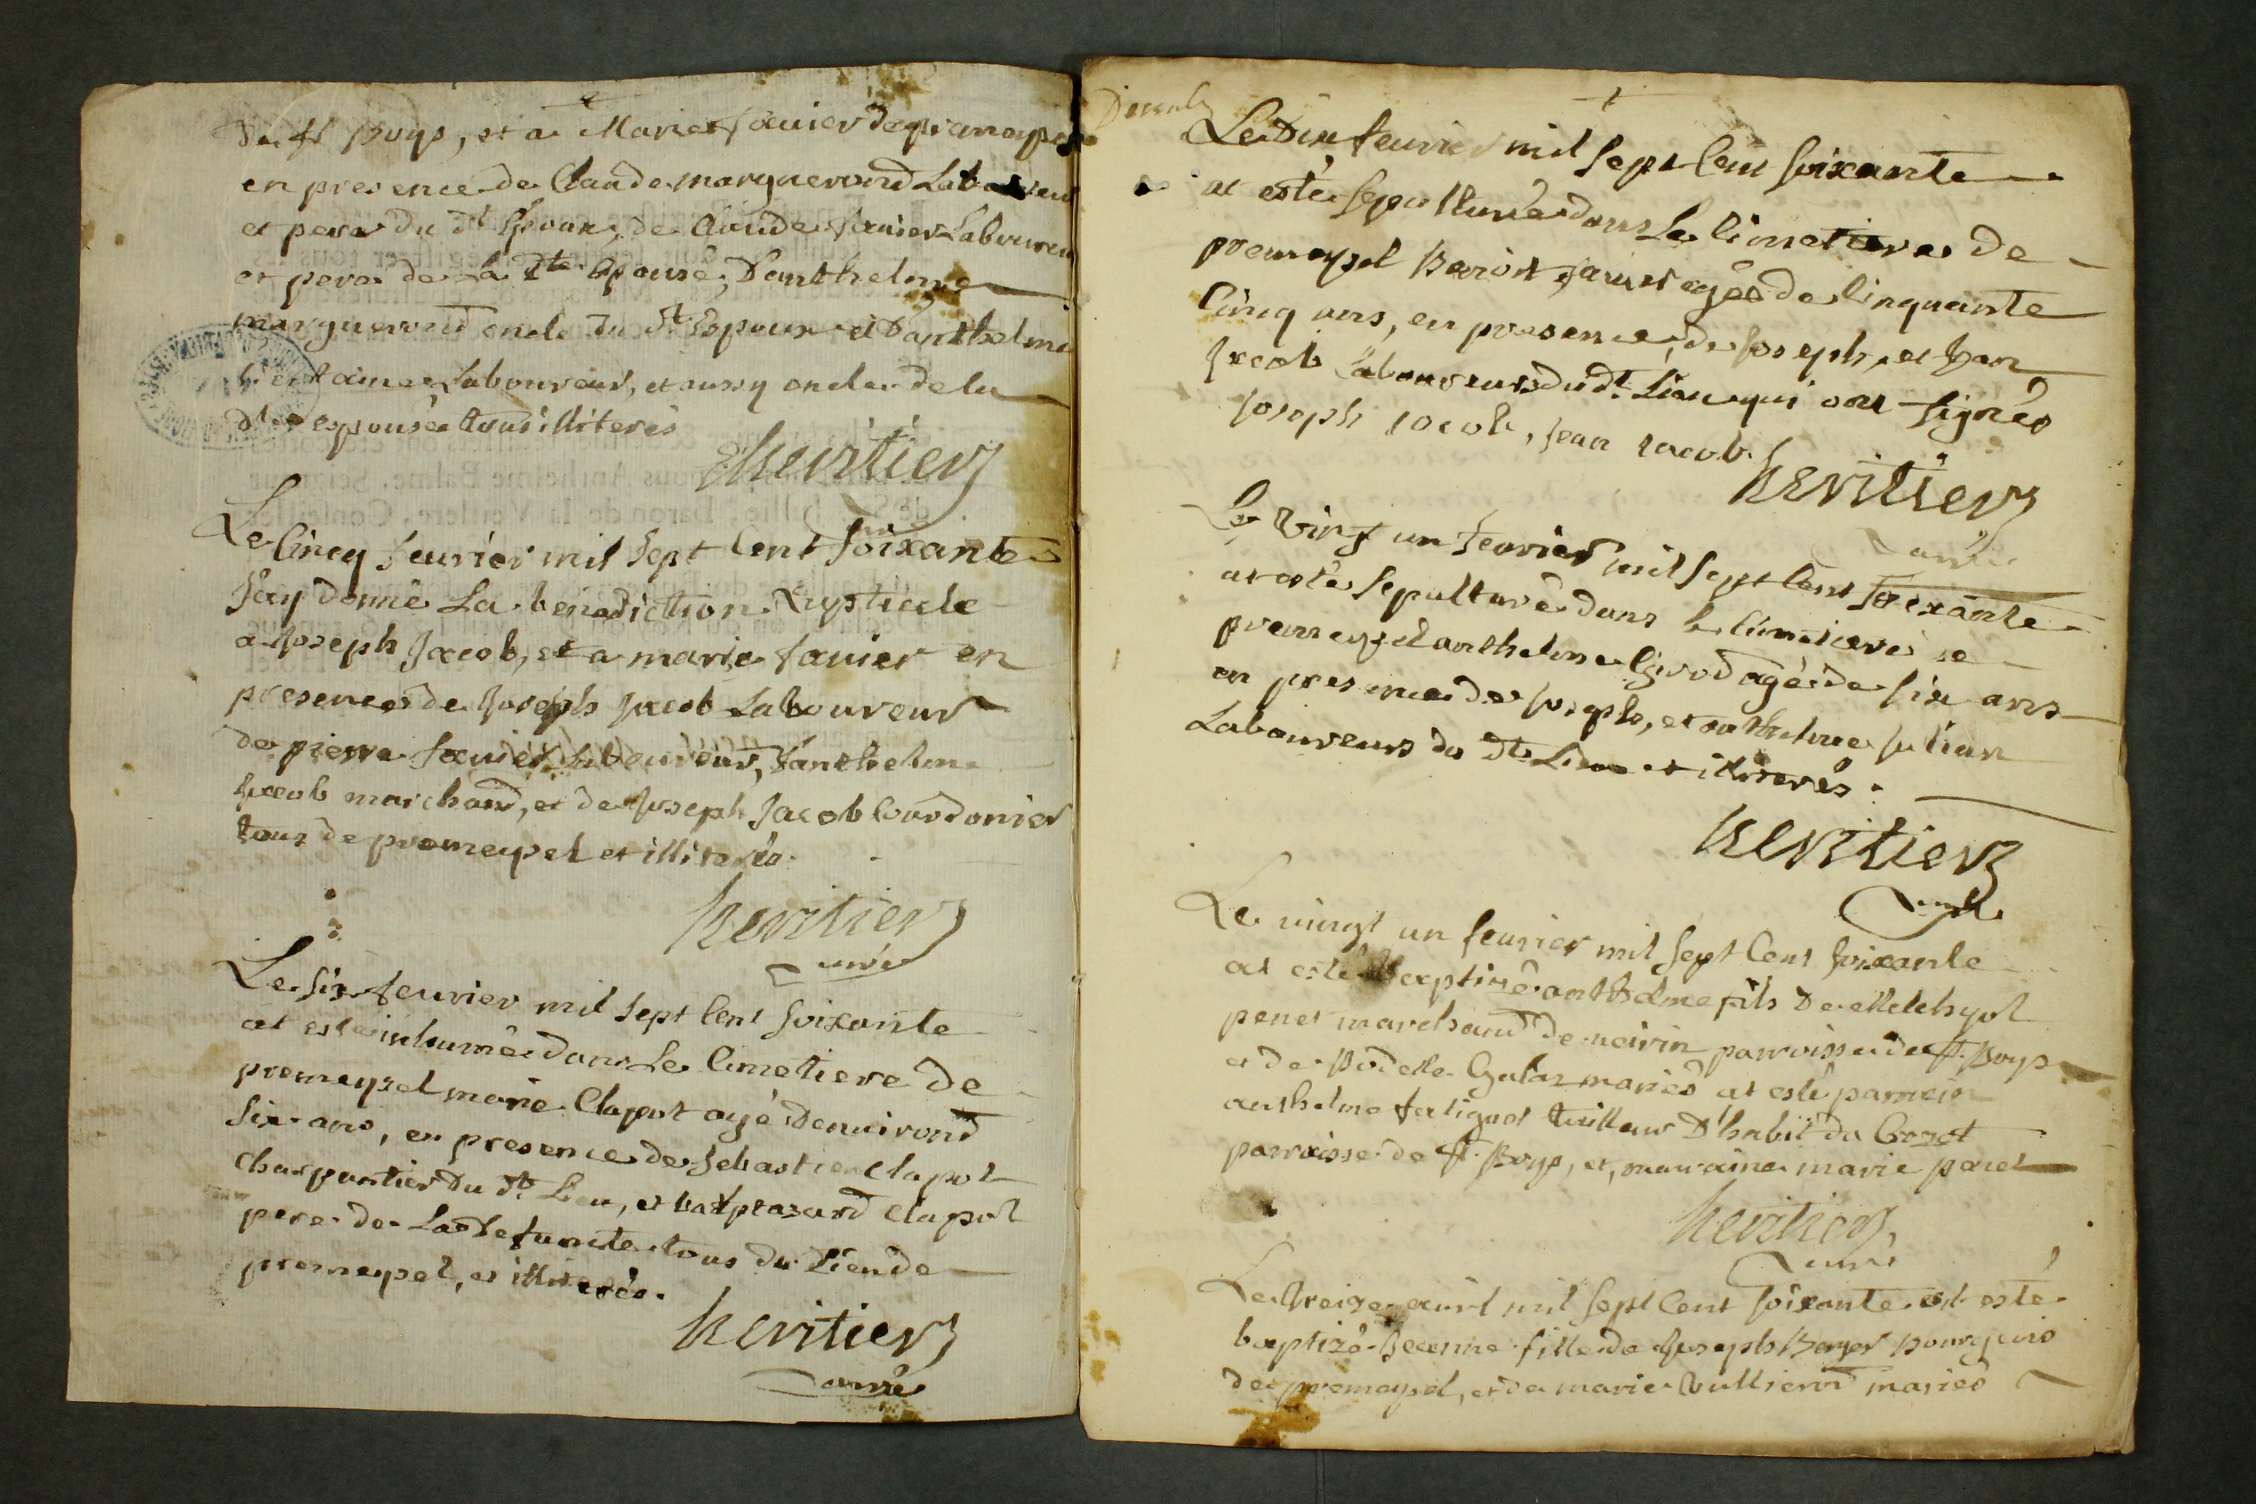 de st Boys, et a Marie favier de premeysel
en presence de Claude marguerond Laboureur
et pere du dt Epoux, de Claude favier Laboureur
et pere de la dte Epouse, D'anthelme
marguerond oncle du dt Espoux et D'anthelme
Laboureur, et aussy oncle de la
dte espouse tous illiterés
heritier
Le Cincq feuvrier mil sept Cent soixante
J'ay donné La benediction
a Joseph Jacob, et a marie favier en
presence de Joseph Jacob Laboureur
de pierre favier Laboureur, d'anthelme
Jacob marchand, et de Joseph Jacob Courdonier
tous de premeysel et illiterés.
heritier
curé
Le six feuvrier mil sept Cent soixante
at esté inhumée dans Le Cimetiere de
premeysel marie Clapot agé d'environd
six ans, en presence de Sebastien Clapot
Charpantier du dt Lieu, et baltazard Clapot
pere de La defuncte tous du Lieu de
premeysel, et illiterés.
heritier
curé
Le Dix feuvrier mil sept Cent soixante
at esté sepulturée dans Le Cimetiere de
premeysel Benoit favier agée de Cinquante
Cincq ans, en presence, de Joseph, et Jean
Jacob Laboureurs du dt Lieu qui ont signés
Joseph iacob, jean iacob
heritier
curé
Le Vingt un feuvrier mil sept Cent soixante
at esté sepulturé dans le Cimetiere de
premeysel anthelme Girod agé de six ans
en presence de Joseph, et anthelme Julian
Laboureurs du dt Lieu et illiterés.
heritier
curé
Le vingt un feuvrier mil sept Cent soixante
at esté baptizé anthelme fils De Melchyol
penet marchand de neirin parroisse de st Boys
et de Bodelle Galar mariés at esté parrein
anthelme fatiguet tailleur D'habit du Crozet
parroisse de st Boys, et, marraine marie penet
heritier
curé
Le treize avril mil sept Cent soixante at esté
baptizé Jeanne fille de Joseph Berger Bourgeois
de premeysel, et de marie Vullierod mariés